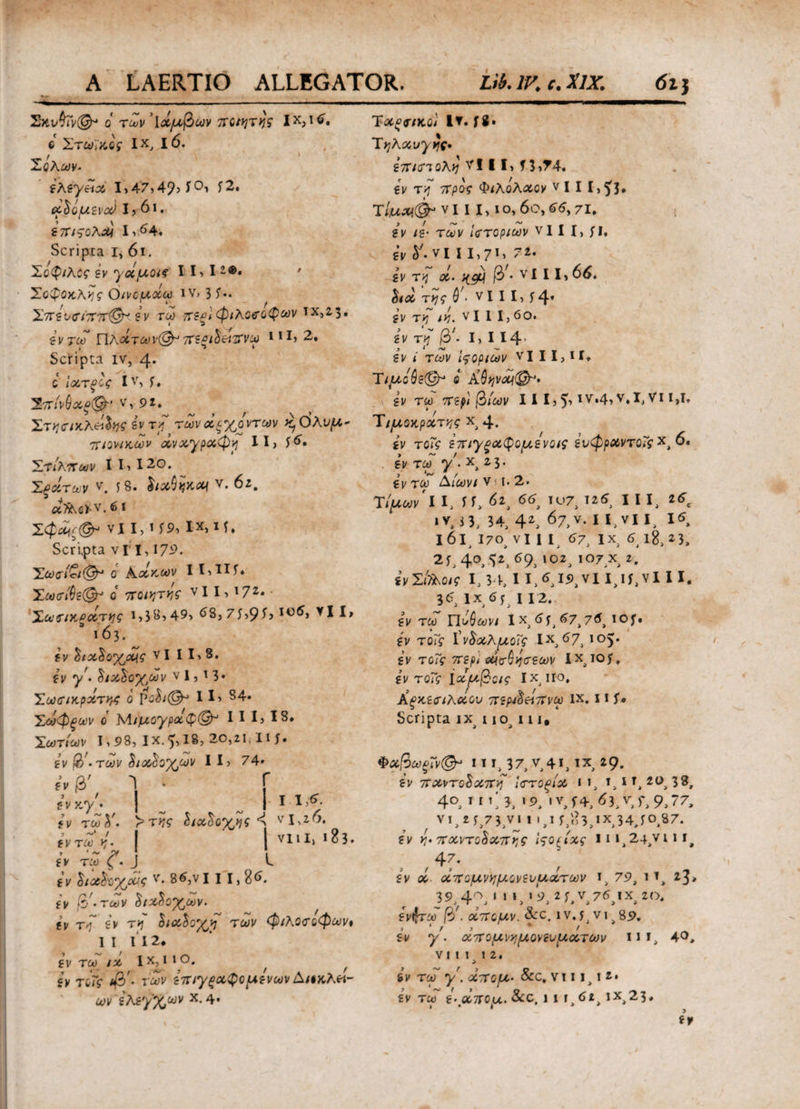 A LAERTIO ALLEGATOR. Lib. IV. c. XIX. 623
Σκυθῖνος ὁ τῶν Ἰάμβων ποιητὴς IX, 16.
ὁ Στωϊκὸς IX, 16.
Σόλων.
ἐλεγεῖα I, 47, 49, 50, 52.
ᾀδόμενα I, 61.
ἐπιστολαὶ I, 64.
Scripta I, 61.
Σόφιλος ἐν γάμοις II, 120.
Σοφοκλῆς Οἰνομάῳ IV, 35.
Σπεύσιππος ἐν τῷ περὶ φιλοσόφων IX, 23.
ἐν τῷ Πλάτωνος περιδείπνῳ III, 2.
Scripta IV, 4.
ὁ ἰατρὸς IV, 5.
Σπίνθαρος V, 92.
Στησικλείδης ἐν τῇ τῶν ἀρχόντων καὶ Ὀλυμ-
πιονικῶν ἀναγραφῇ II, 56.
Στίλπων II, 120.
Στράτων V. 58. διαθῆκαι V. 62.
ἄλλοι V. 61
Σφαῖρος VII, 159, IX, 15.
Scripta VII, 179.
Σωσίβιος ὁ Λάκων II, 115.
Σωσίθεος ὁ ποιητὴς VII, 172.
Σωσικράτης I, 38, 49, 68, 75, 95, 106, VII,
163.
ἐν διαδοχαῖς VIII, 8.
ἐν γ΄. διαδοχῶν VI, 13.
Σωσικράτης ὁ Ῥόδιος II, 84.
Σώφρων ὁ Μιμογράφος III, 18.
Σωτίων I, 98, IX. 5, 18, 20, 21, 115.
ἐν β΄. τῶν διαδοχῶν II, 74.
ἐν β΄
ἐν κγ΄. I 1,6.
ἐν τῷ δ΄. τῆς διαδοχῆς VI, 26.
ἐν τῷ η΄. VIII, 183.
ἐν τῷ ζ΄.
ἐν διαδοχαῖς V. 86, VIII, 86.
ἐν β΄. τῶν διαδοχῶν.
ἐν τῇ ἐν τῇ διαδοχῇ τῶν φιλοσόφων,
II 112.
ἐν τῷ ια IX, 110.
ἐν τοῖς ιβ΄. τῶν ἐπιγραφομένων Διοκλεί-
ων ἐλέγχων X. 4.
Ταρσικοὶ IV. 58.
Τηλαυγής.
ἐπιστολὴ VIII, 53, 74.
ἐν τῇ πρὸς Φιλόλαον VIII, 53.
Τίμαιος VIII, 10, 60, 66, 71.
ἐν ιε΄ τῶν ἱστοριῶν VIII, 51.
ἐν δ΄. VIII, 71, 72.
ἐν τῇ α. καὶ β΄. VIII, 66.
διὰ τῆς θ΄. VIII, 54.
ἐν τῇ ιη. VIII, 60.
ἐν τῇ β΄. I, 114.
ἐν ι τῶν ἱστοριῶν VIII, 11.
Τιμόθεος ὁ Ἀθηναῖος.
ἐν τῷ περὶ βίων III, 5, IV. 4, V. 1, VII, 1.
Τιμοκράτης X, 4.
ἐν τοῖς ἐπιγραφομένοις εὐφραντοῖς X, 6.
ἐν τῷ γ΄. X, 23.
ἐν τῷ Δίωνι VII. 2.
Τίμων II, 55, 62, 66, 107, 126, III, 26,
IV, 33, 34, 42, 67, V. 11, VII, 16,
161, 170, VIII, 67, IX, 6, 18, 23,
25, 40, 52, 69, 102, 107, X, 2.
ἐν Σίλλοις I, 34, II, 6, 19, VII, 15, VIII.
36, IX, 65, 112.
ἐν τῷ Πύθωνι IX, 65, 67, 76, 105.
ἐν τοῖς Ἰνδαλμοῖς IX, 67, 105.
ἐν τοῖς περὶ αἰσθήσεων IX, 105.
ἐν τοῖς Ἰάμβοις IX, 110.
Ἀρκεσιλάου περιδείπνῳ IX. 115.
Scripta IX, 110, 111.
Φαβωρῖνος III, 37, V, 41, IX, 29.
ἐν παντοδαπῇ ἱστορίᾳ II, 1, 11, 20, 38,
40, III, 3, 19, IV, 54, 63, V, 5, 9, 77,
VI, 25, 73, VIII, 15, 83, IX, 34, 50, 87.
ἐν η. παντοδαπῆς ἱστορίας III, 24, VIII,
47.
ἐν α. ἀπομνημονευμάτων I, 79, II, 23,
39, 40, III, 19, 25, V, 76, IX, 20.
ἐν τῷ β΄. ἀπομν. &c. IV. 5, VI, 89.
ἐν γ΄. ἀπομνημονευμάτων III, 40,
VIII, 12.
ἐν τῷ γ΄. ἀπομ. &c, VIII, 12.
ἐν τῷ ε. ἀπομ. &c, III, 62, IX, 23.
ἐν